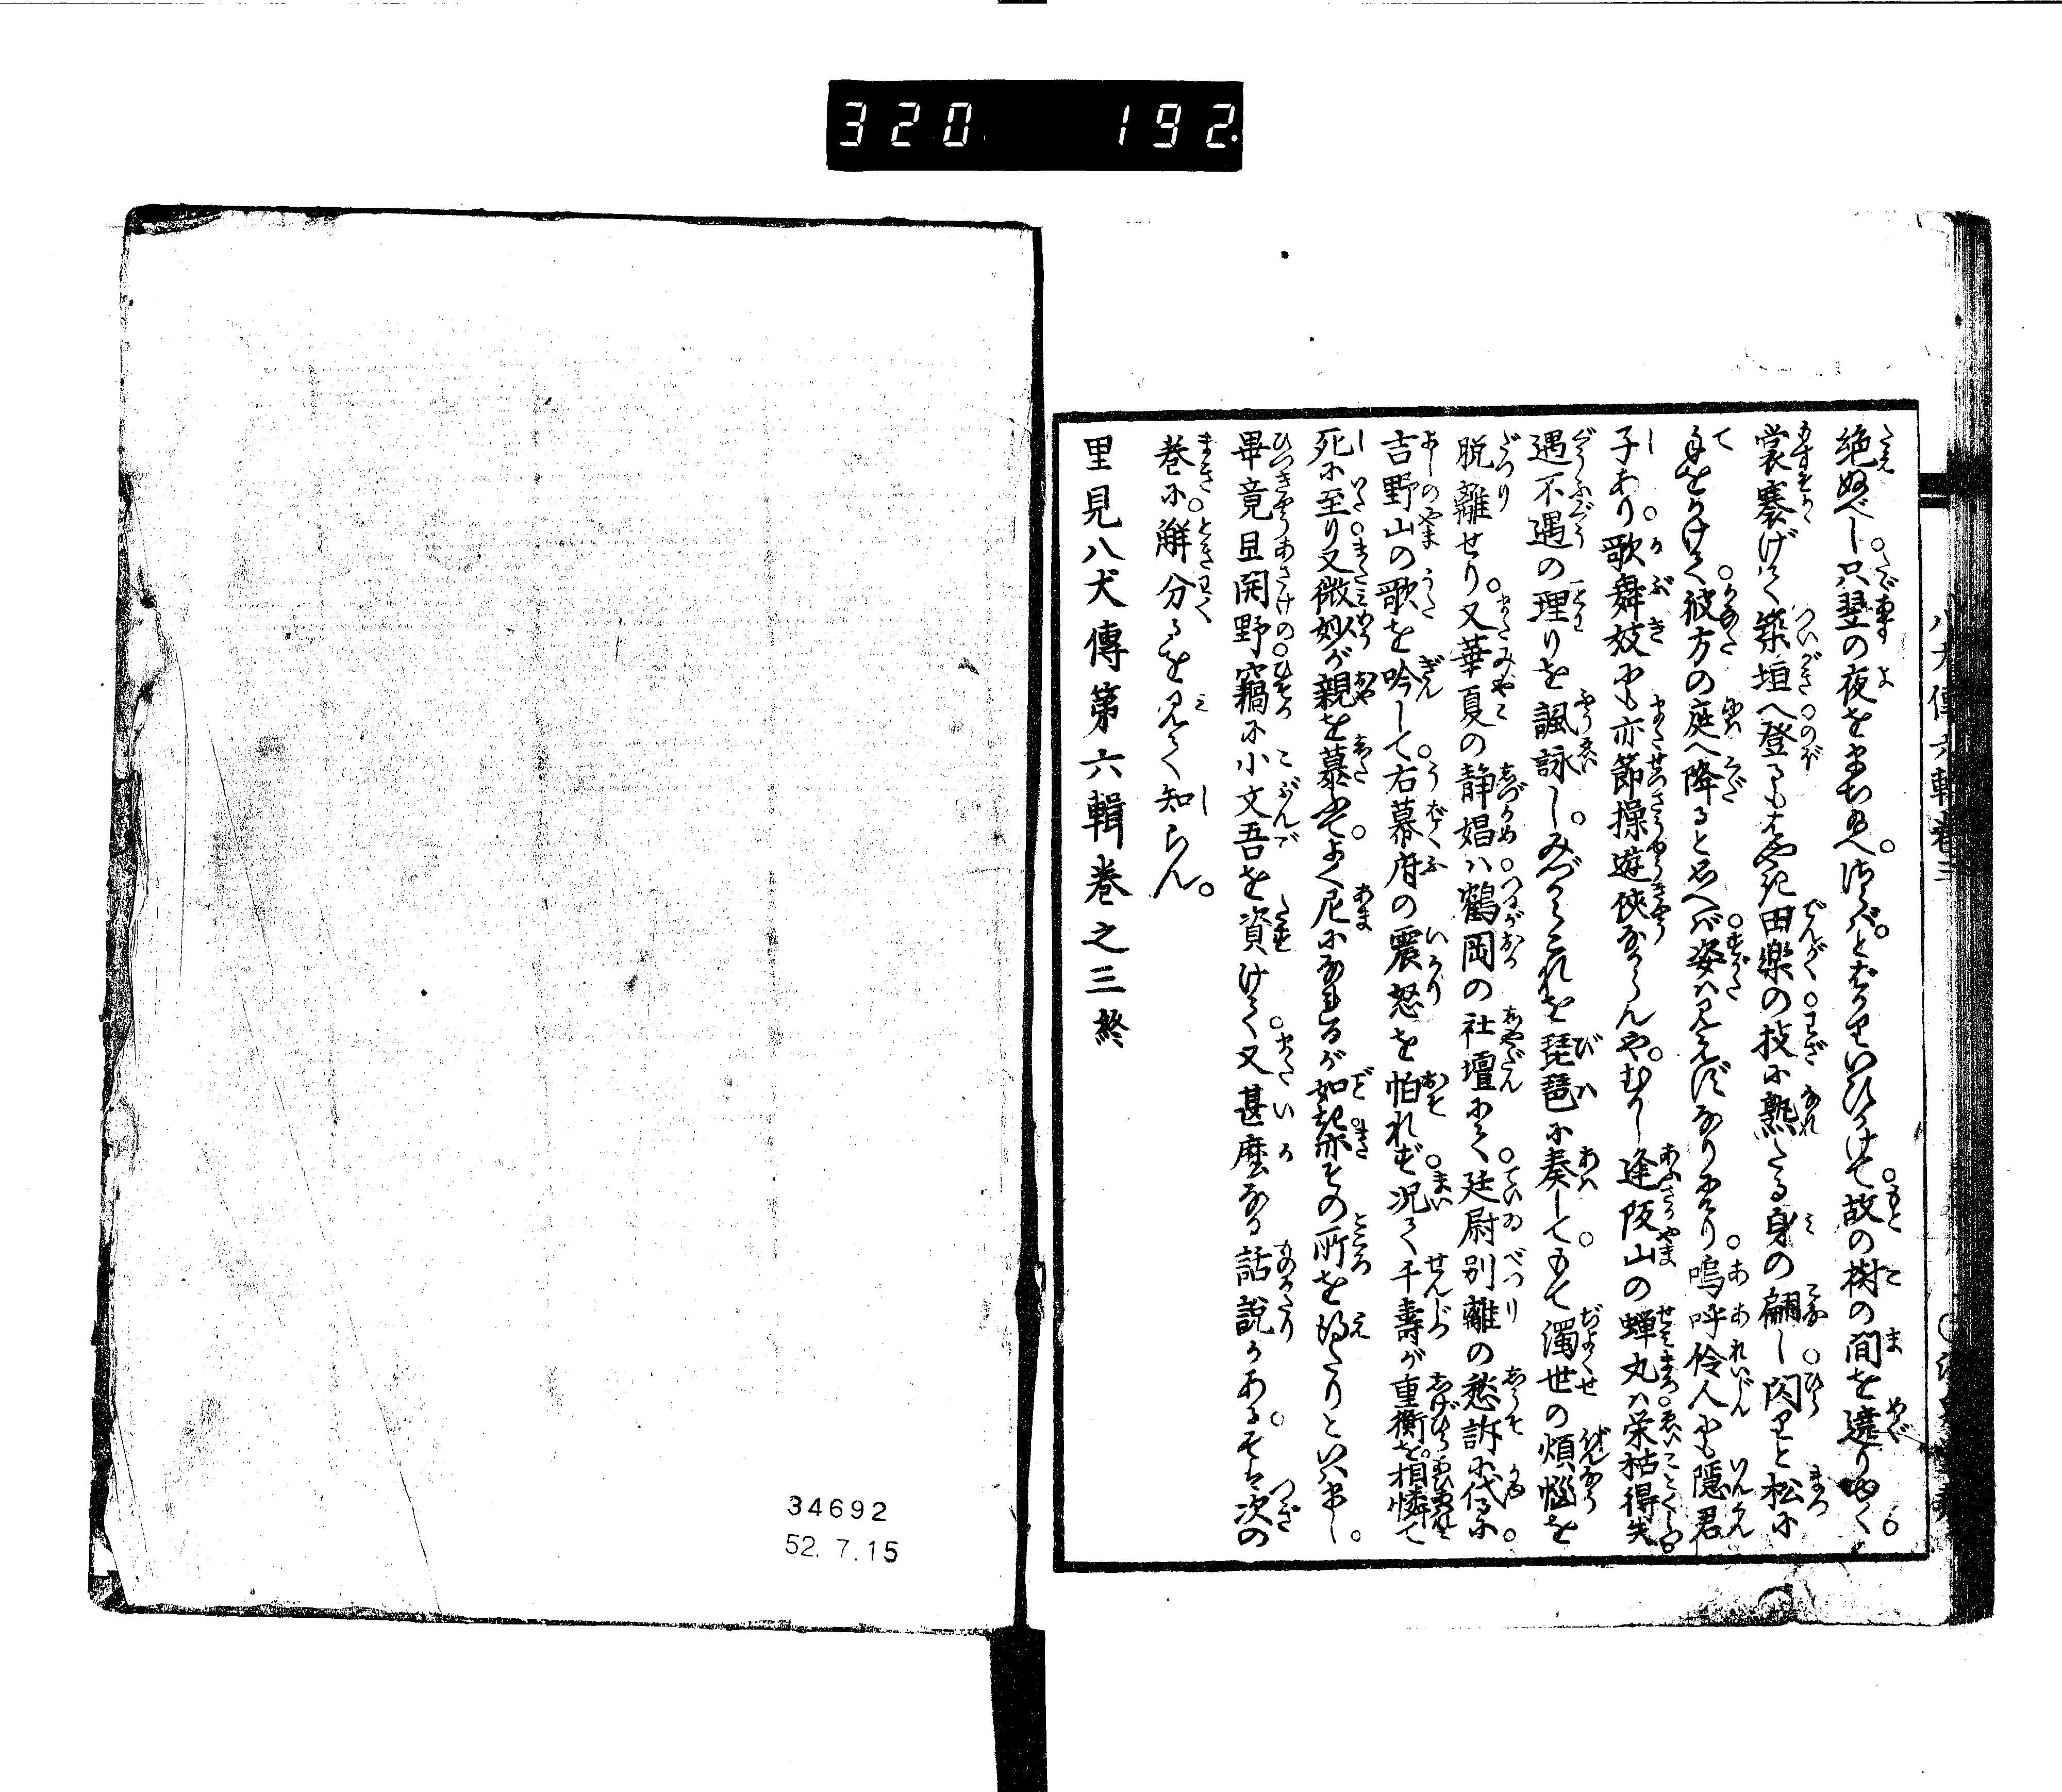 320 192
絶ぬべし。只翌の夜をまち給へ。さらば。とばかりいひかけて。故の樹の間を遶りゆく。
裳褰げて築垣へ登るもはやき田楽の技に熟たる身の翩し閃りと松に
手をかけて。彼方の庭へ降るとおもへば。姿は見えずなりにけり。嗚呼伶人にも隠君
子あり。歌舞妓にも亦節操遊侠なからんや。むかし逢阪山の蝉丸は栄枯得失。
遇不遇の理りを諷詠し。みづからこれを琵琶に奏して。もて濁世の煩悩を
脱離せり。又華夏の静娼は。鶴岡の社壇にて。廷尉別離の愁訴に代るに。
吉野山の歌を吟して。右幕府の震怒を怕れず。况て千壽が重衡を。相憐て
死に至り。又微妙が親を慕ひて。よく尼になれるが如き。亦その所を得たりといはまし。
畢竟旦開野。竊に小文吾を資けて。又甚麼なる話説かある。そは次の
巻に。解分るを見て知らん。
里見八犬傳第六輯巻之三終
34692
52.7.15